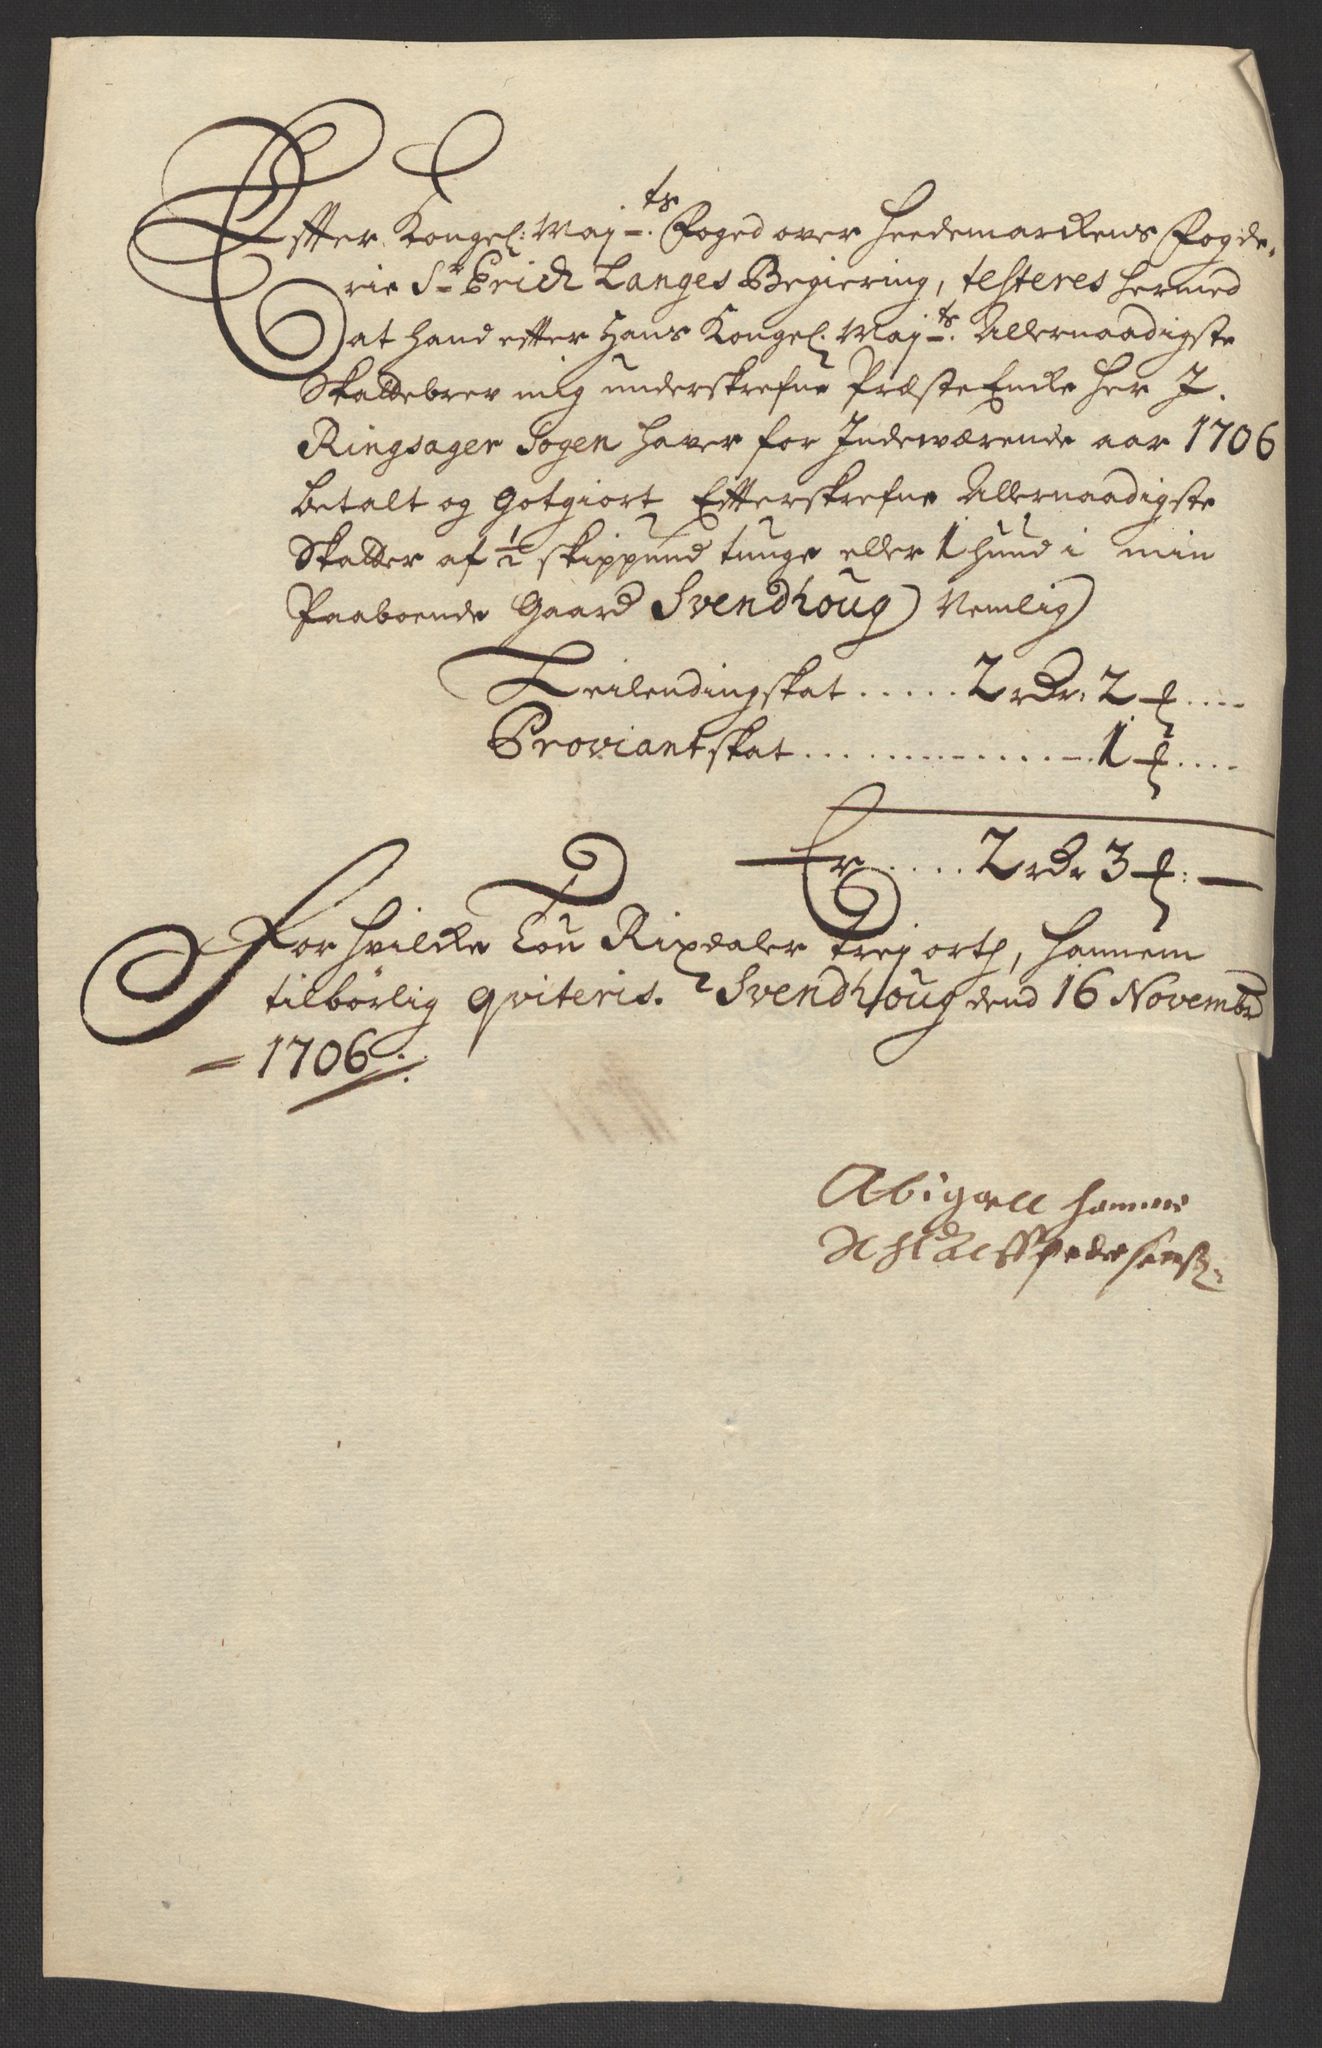 Efter Kongel: Maj-ts. Foged over Heedemarckens Fogde-
rie Sr Erich Langes Begiering, testeres hermed
at hand efter Hans Kongel. Maj-ts. Allernaadigste
Skattebrev mig underskrefne Præste Encke her J.
Ringsager Sogen haver for Indeværende aar 1706
betalt og Gotgiort Efterskrefne Allernaadigste
Skatter af ½ skippund tunge eller 1 hund i min
Paaboende Gaard Svendhoug) Nemlig)
Leilendingskat ..... 2 rdr. 2 ₰ ....
Proviantskat .............. 1 ₰ ....
Er ..... 2 rdr 3 ₰: —
For hvilcke Tou Rixdaler trej ort, hannem
tilbörlig qviteris. Svendhoug dend 16 Novembr
- 1706 ./.
Abigaell